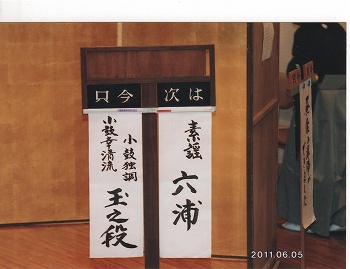 次は
素謡
六浦
只今
小鼓幸清流
小鼓独調
玉之段
2011.06.05